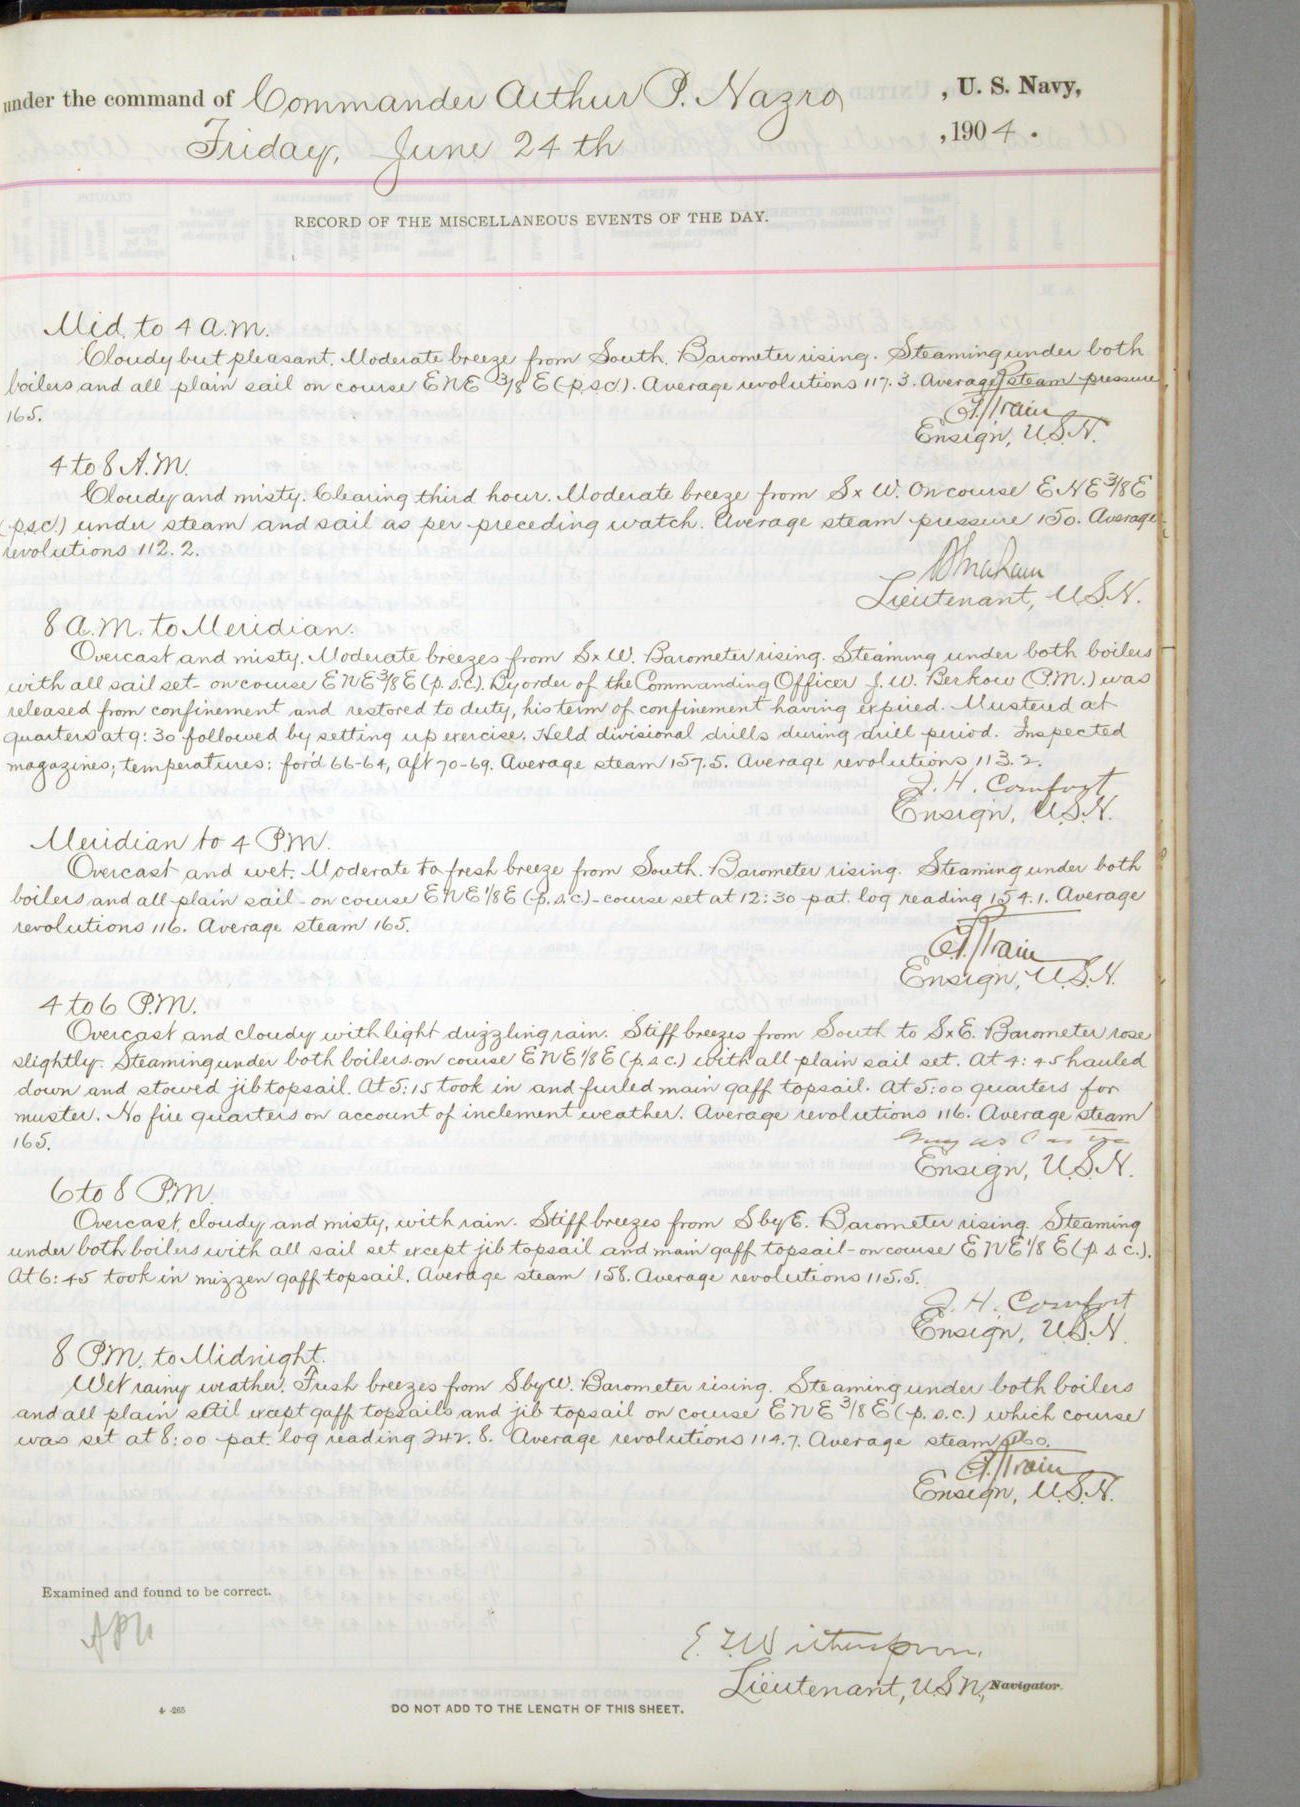 under the command of Commander Arthur P. Nazro, U. S. Navy,
Friday, June 24th, 1904.
RECORD OF THE MISCELLANEOUS EVENTS OF THE DAY.
Mid. to 4 A.M.
Cloudy but pleasant. Moderate breeze from South. Barometer rising. Steaming under both
boilers and all plain sail on course ENE 3/8 E (p.s.c.). Average revolutions 117.3. Average steam pressure
165.
Train
Ensign, U.S.N.
4 to 8 A.M.
Cloudy and misty. Clearing third hour. Moderate breeze from SxW. On course ENE 3/8 E
(p.s.c.) under steam and sail as per preceding watch. Average steam pressure 150. Average
revolutions 112.2.
Lieutenant, U.S.N.
8 A.M. to Meridian.
Overcast and misty. Moderate breezes from SxW. Barometer rising. Steaming under both boilers
with all sail set - on course ENE 3/8 E (p.s.c.). By order of the Commanding Officer J. W. Berkow (P.M.) was
released from confinement and restored to duty, his term of confinement having expired. Mustered at
quarters at 9:30 followed by setting up exercise. Held divisional drills during drill period. Inspected
magazines; temperatures: for'd 66-64, aft 70-69. Average steam 157.5. Average revolutions 113.2.
J. H. Comfort
Ensign, U.S.N.
Meridian to 4 P.M.
Overcast and wet. Moderate to fresh breeze from South. Barometer rising. Steaming under both
boilers and all plain sail - on course ENE 1/8 E (p.s.c.) - course set at 12:30 pat. log reading 154.1. Average
revolutions 116. Average steam 165.
Train
Ensign, U.S.N.
4 to 6 P.M.
Overcast and cloudy with light drizzling rain. Stiff breezes from South to SxE. Barometer rose
slightly. Steaming under both boilers on course ENE 1/8 E (p.s.c.) with all plain sail set. At 4:45 hauled
down and stowed jib topsail. At 5:15 took in and furled main gaff topsail. At 5:00 quarters for
muster. No fire quarters on account of inclement weather. Average revolutions 116. Average steam
165.
Ensign, U.S.N.
6 to 8 P.M.
Overcast, cloudy and misty, with rain. Stiff breezes from S by E. Barometer rising. Steaming
under both boilers with all sail set except jib topsail and main gaff topsail - on course ENE 1/8 E (p.s.c.).
At 6:45 took in mizzen gaff topsail. Average steam 158. Average revolutions 115.5.
J. H. Comfort
Ensign, U.S.N.
8 P.M. to Midnight.
Wet rainy weather. Fresh breezes from S by W. Barometer rising. Steaming under both boilers
and all plain sail except gaff topsails and jib topsail on course ENE 3/8 E (p.s.c.) which course
was set at 8:00 pat. log reading 242.8. Average revolutions 114.7. Average steam 160.
Train
Ensign, U.S.N.
Examined and found to be correct.
E. F. Witherspoon.
Lieutenant, U.S.N., Navigator.
DO NOT ADD TO THE LENGTH OF THIS SHEET.